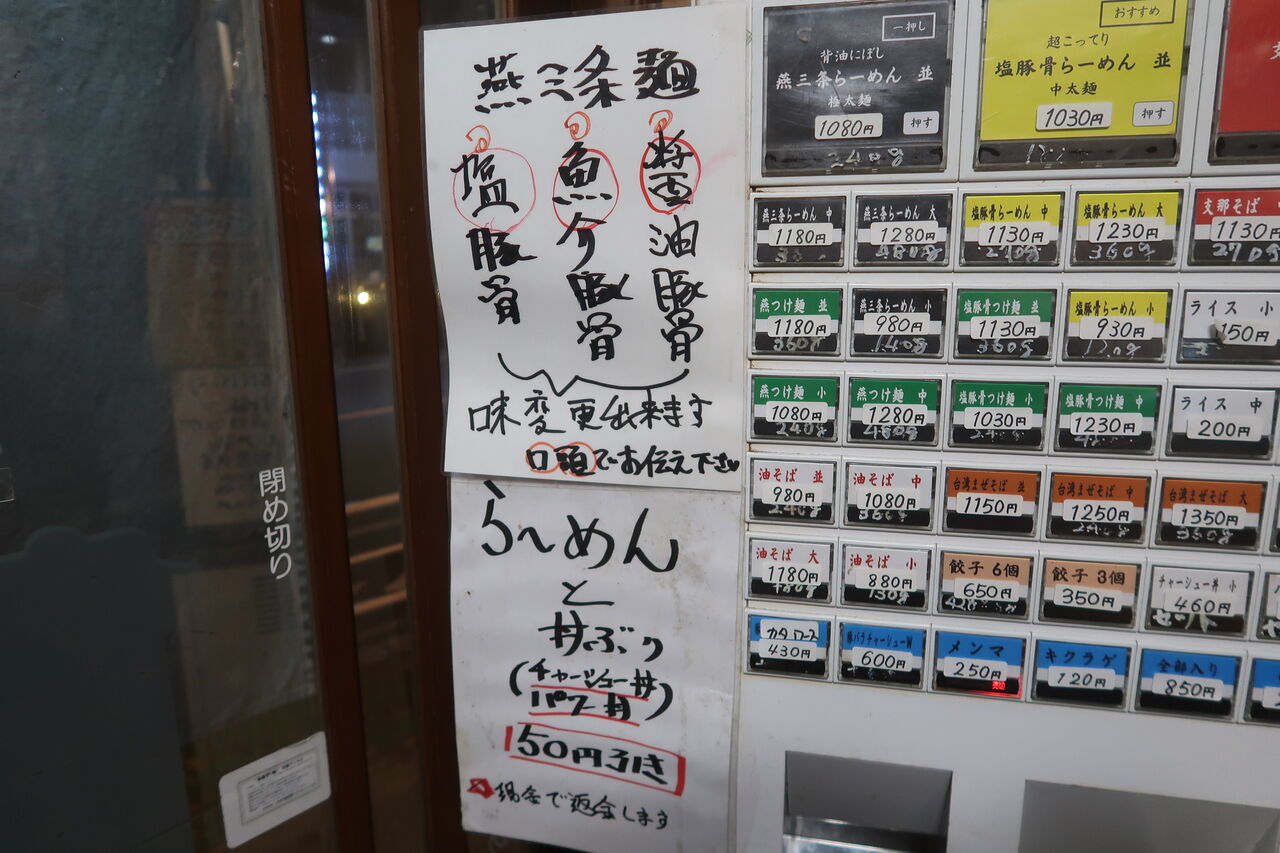 閉め切り
燕三条麺
醤油豚骨
魚介豚骨
塩豚骨
味変更出来ます
口頭でお伝え下さい
らーめん
と
丼ぶり
(チャーシュー丼
バラ丼)
50円引き
現金で返金します
一押し
背油にぼし
燕三条らーめん 並
極太麺
1080円
押す
240g
おすすめ
超こってり
塩豚骨らーめん 並
中太麺
1030円
押す
燕三条らーめん 中
1180円
燕三条らーめん 大
1280円
480g
塩豚骨らーめん 中
1130円
270g
塩豚骨らーめん 大
1230円
360g
支那そば 中
1130円
270g
燕つけ麺 並
1180円
360g
燕三条らーめん 小
980円
140g
塩豚骨つけ麺 並
1130円
360g
塩豚骨らーめん 小
930円
ライス 小
150円
燕つけ麺 小
1080円
240g
燕つけ麺 中
1280円
480g
塩豚骨つけ麺 小
1030円
塩豚骨つけ麺 中
1230円
ライス 中
200円
油そば 並
980円
240g
油そば 中
1080円
360g
台湾まぜそば 並
1150円
台湾まぜそば 中
1250円
台湾まぜそば 大
1350円
油そば 大
1180円
480g
油そば 小
880円
130g
餃子 6個
650円
餃子 3個
350円
チャーシュー丼 小
460円
カタロース
430円
豚バラチャーシューW
600円
メンマ
250円
売切
キクラゲ
120円
全部入り
850円